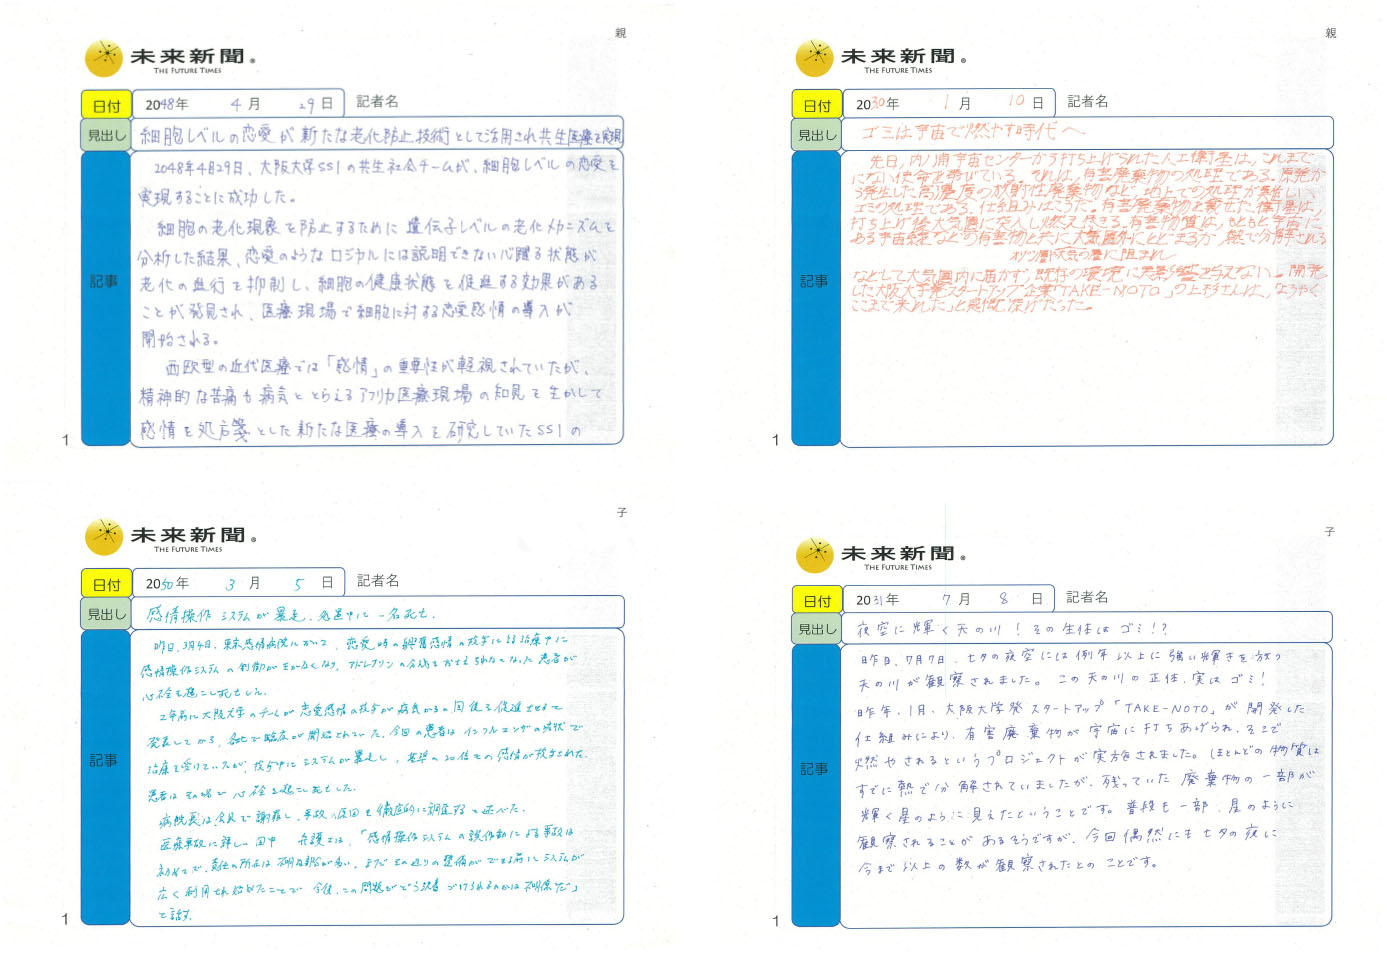 親
未来新聞®
THE FUTURE TIMES
日付 2048年 4月 29日 記者名
見出し 細胞レベルの恋愛が新たな老化防止技術として活用され共生医療を実現
記事
2048年4月29日、大阪大学SSIの共生社会チームが、細胞レベルの恋愛を
実現することに成功した。
細胞の老化現象を防止するために遺伝子レベルの老化メカニズムを
分析した結果、恋愛のようなロジカルには説明できない心躍る状態が
老化の進行を抑制し、細胞の健康状態を促進する効果がある
ことが発見され、医療現場で細胞に対する恋愛感情の導入が
開始される。
西欧型の近代医療では「感情」の重要性が軽視されていたが、
精神的な苦痛も病気ととらえるアフリカ医療現場の知見を生かして
感情を処方箋とした新たな医療の導入を研究していたSSIの
1
親
未来新聞®
THE FUTURE TIMES
日付 2030年 1月 10日 記者名
見出し ゴミは宇宙で燃やす時代へ
記事
先日、内ノ浦宇宙センターから打ち上げられた人工衛星は、これまで
にない使命を帯びている。それは、有害廃棄物の処理である。原発か
ら発生した高濃度の放射性廃棄物など、地上での処理が難しい
ゴミの処理である。仕組みはこうだ。有害廃棄物を乗せた衛星は、
打ち上げ後大気圏に突入し燃え尽きる。有害物質は、もともと宇宙に
ある宇宙線などの有害物と共に大気圏外にとどまるか、熱で分解される
オゾン層や大気の層に阻まれ
などして大気圏内に届かず、既存の環境に影響を与えない。開発
した大阪大学発スタートアップ企業「TAKE-NOTO」の上杉さんは、「ようやく
ここまで来れた」と感慨深げだった。
1
子
未来新聞®
THE FUTURE TIMES
日付 2050年 3月 5日 記者名
見出し 感情操作システムが暴走、処置中に一名死亡。
記事
昨日、3月4日、東京感情病院において、恋愛時の興奮感情の投与による治療中に
感情操作システムの制御が きかなくなり、アドレナリンの合成をおさえられなくなった患者が
心不全を起こし死亡した。
2年前に大阪大学のチームが恋愛感情の投与が病気からの回復を促進させると
発表してから、各地で臨床が開始されていた。今回の患者はインフルエンザの症状で
治療を受けていたが、投与中にシステムが暴走し、通常の20倍もの感情が投与された。
患者はその場で心不全を起こし死亡した。
病院長は会見で謝罪し、事故の原因を徹底的に調査すると述べた。
医療事故に詳しい田中 弁護士は、「感情操作システムの誤作動による事故は
初めてで、責任の所在は不明な部分が多い。まだその辺りの整備ができる前にシステムが
広く利用され始めたことで、今後、この問題がどう決着づけられるのかは不明瞭だ」
と話す。
1
子
未来新聞®
THE FUTURE TIMES
日付 2031年 7月 8日 記者名
見出し 夜空に輝く天の川!その正体はゴミ!?
記事
昨日、7月7日、七夕の夜空には例年以上に強い輝きを放つ
天の川が観察されました。この天の川の正体、実はゴミ!
昨年、1月、大阪大学発スタートアップ「TAKE-NOTO」が開発した
仕組みにより、有害廃棄物が宇宙に打ちあげられ、そこで
燃やされるというプロジェクトが実施されました。ほとんどの物質は
すでに熱で分解されていましたが、残っていた廃棄物の一部が
輝く星のように見えたということです。普段も一部、星のように
観察されることがあるそうですが、今回偶然にも七夕の夜に
今まで以上の数が観察されたとのことです。
1